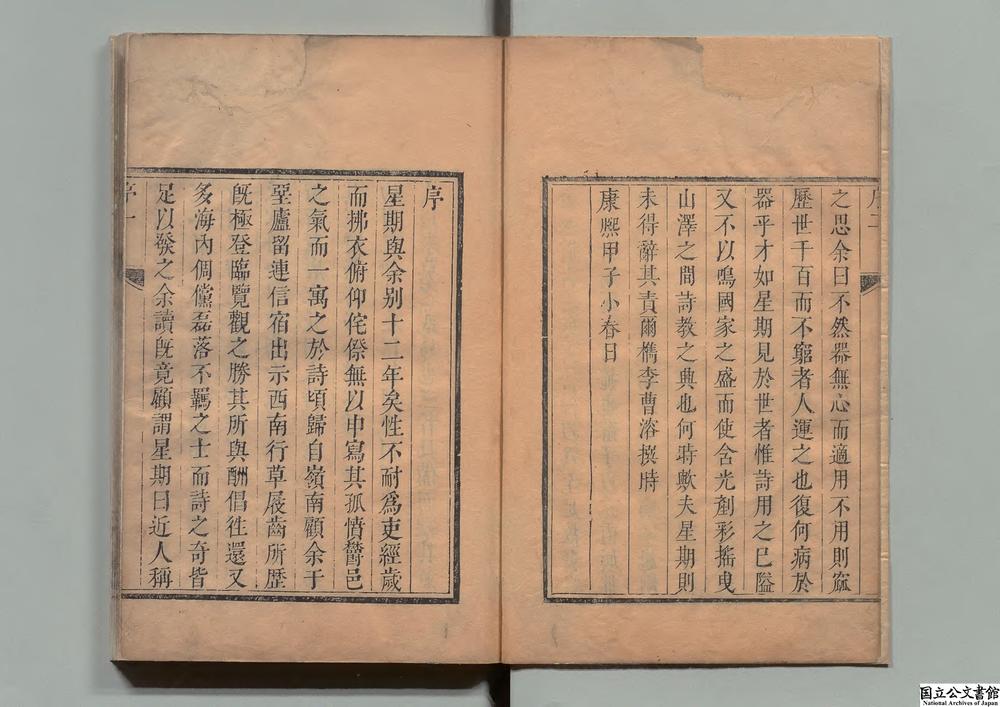 序二
之思余曰不然器無心而適用不用則窳
歷世千百而不窮者人運之也復何病於
器乎才如星期見於世者惟詩用之已隘
又不以鳴國家之盛而使含光剷彩摇曳
山澤之間詩教之典也何時歟夫星期則
未得辭其責爾檇李曹溶撰時
康熙甲子小春日
序
星期與余别十二年矣性不耐爲吏經歲
而拂衣俯仰侘傺無以申寫其孤憤鬱邑
之氣而一寓之於詩頃歸自嶺南顧余于
堊廬留連信宿出示西南行草屐齒所歷
旣極登臨覽觀之勝其所與酬倡徃還又
多海內倜儻磊落不羈之士而詩之奇皆
足以發之余讀旣竟顧謂星期曰近人稱
序一
国立公文書館
National Archives of Japan